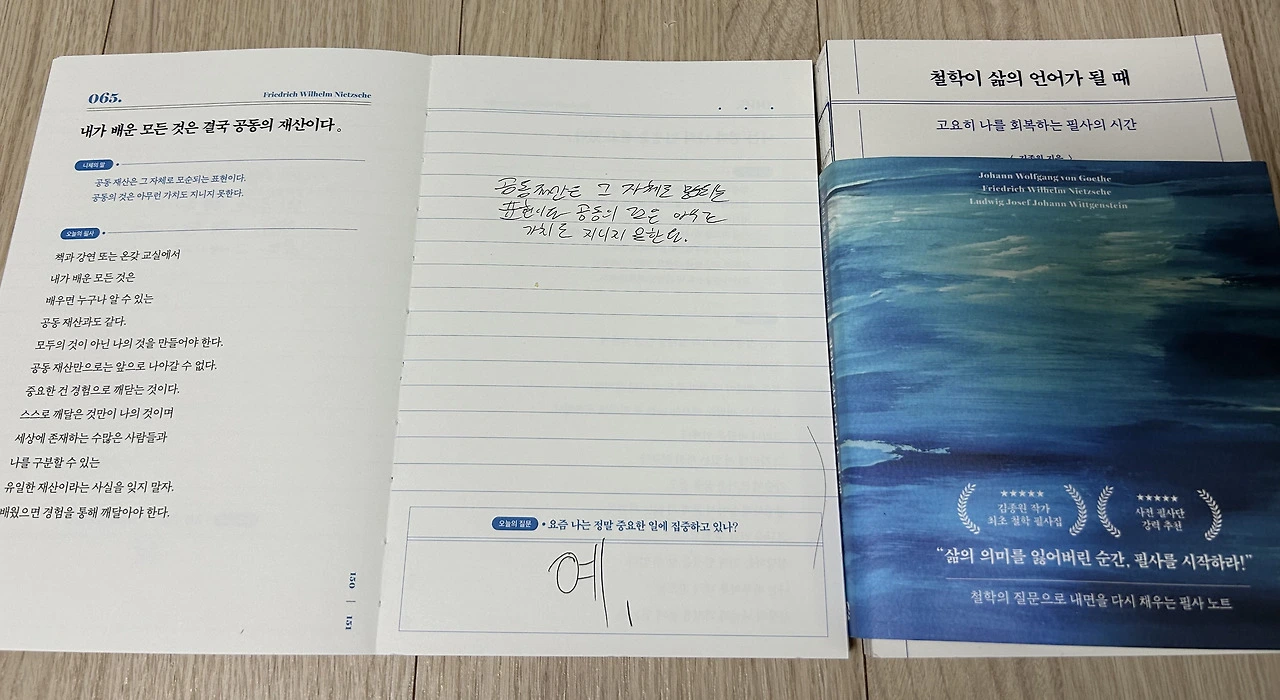 065.
Friedrich Wilhelm Nietzsche
내가 배운 모든 것은 결국 공동의 재산이다.
니체의 말
공동 재산은 그 자체로 모순되는 표현이다.
공동의 것은 아무런 가치도 지니지 못한다.
오늘의 필사
책과 강연 또는 온갖 교실에서
내가 배운 모든 것은
배우면 누구나 알 수 있는
공동 재산과도 같다.
모두의 것이 아닌 나의 것을 만들어야 한다.
공동 재산만으로는 앞으로 나아갈 수 없다.
중요한 건 경험으로 깨닫는 것이다.
스스로 깨달은 것만이 나의 것이며
세상에 존재하는 수많은 사람들과
나를 구분할 수 있는
유일한 재산이라는 사실을 잊지 말자.
배웠으면 경험을 통해 깨달아야 한다.
150 | 151
공동 재산은 그 자체로
표현이다 공동의 것은
가치도 지니지 못한다.
오늘의 질문 • 요즘 나는 정말 중요한 일에 집중하고 있나?
예.
철학이 삶의 언어가 될 때
고요히 나를 회복하는 필사의 시간
Johann Wolfgang von Goethe
Friedrich Wilhelm Nietzsche
Ludwig Josef Johann Wittgenstein
★★★★★
김종원 작가
최초 철학 필사집
★★★★★
사전 필사단
강력 추천
“삶의 의미를 잃어버린 순간, 필사를 시작하라!”
철학의 질문으로 내면을 다시 채우는 필사 노트